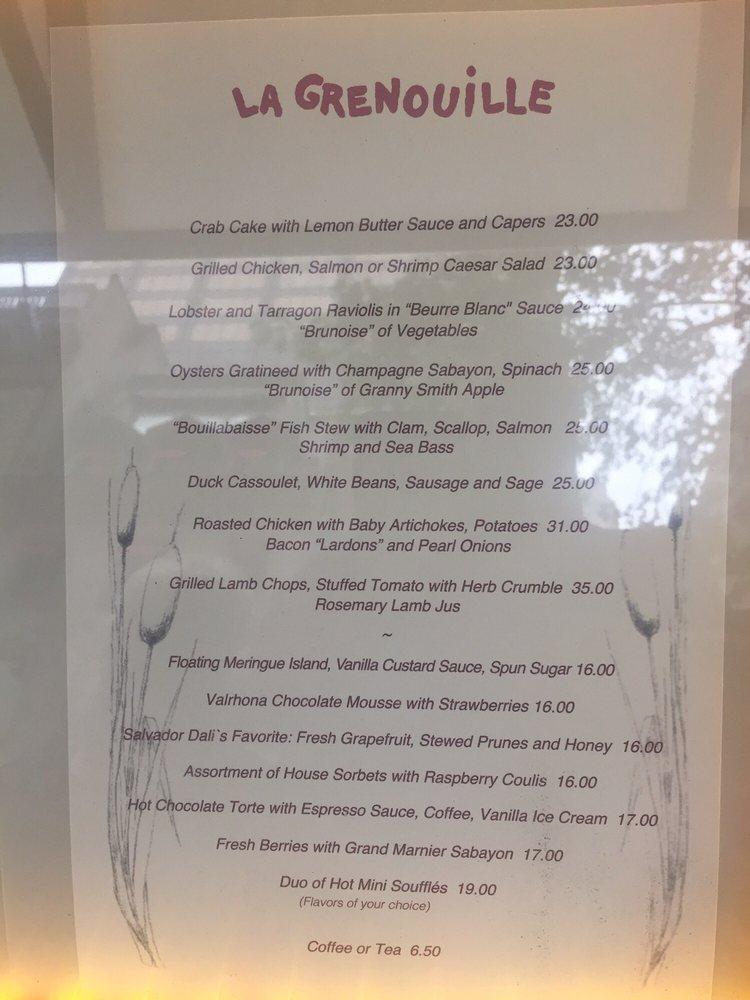 LA GRENOUiLLE
Crab Cake with Lemon Butter Sauce and Capers 23.00
Grilled Chicken, Salmon or Shrimp Caesar Salad 23.00
Lobster and Tarragon Raviolis in “Beurre Blanc" Sauce
“Brunoise” of Vegetables
Oysters Gratineed with Champagne Sabayon, Spinach 25.00
“Brunoise” of Granny Smith Apple
“Bouillabaisse” Fish Stew with Clam, Scallop, Salmon 25.00
Shrimp and Sea Bass
Duck Cassoulet, White Beans, Sausage and Sage 25.00
Roasted Chicken with Baby Artichokes, Potatoes 31.00
Bacon “Lardons” and Pearl Onions
Grilled Lamb Chops, Stuffed Tomato with Herb Crumble 35.00
Rosemary Lamb Jus
~
Floating Meringue Island, Vanilla Custard Sauce, Spun Sugar 16.00
Valrhona Chocolate Mousse with Strawberries 16.00
Salvador Dali`s Favorite: Fresh Grapefruit, Stewed Prunes and Honey 16.00
Assortment of House Sorbets with Raspberry Coulis 16.00
Hot Chocolate Torte with Espresso Sauce, Coffee, Vanilla Ice Cream 17.00
Fresh Berries with Grand Marnier Sabayon 17.00
Duo of Hot Mini Soufflés 19.00
(Flavors of your choice)
Coffee or Tea 6.50